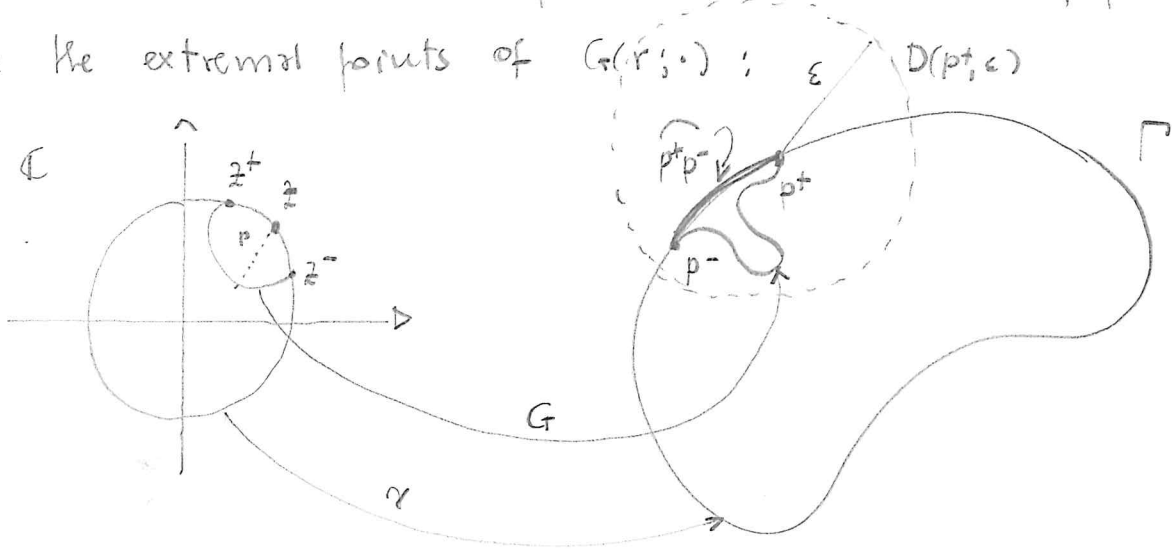 the extremal points of G(r;·) :
D(p⁺,ε)
ε
ℂ
z⁺
z
ρ
z⁻
p⁺p⁻
p⁺
p⁻
Γ
G
γ